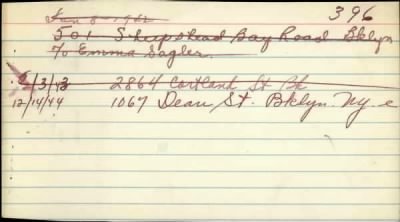 Jan 8 - 1942 396
501 Sheepshead Bay Road Bklyn
c/o Emma Sagler.
2/3/43 2864 Cortland St Bk
12/14/44 1067 Dean St. Bklyn. Ny. e